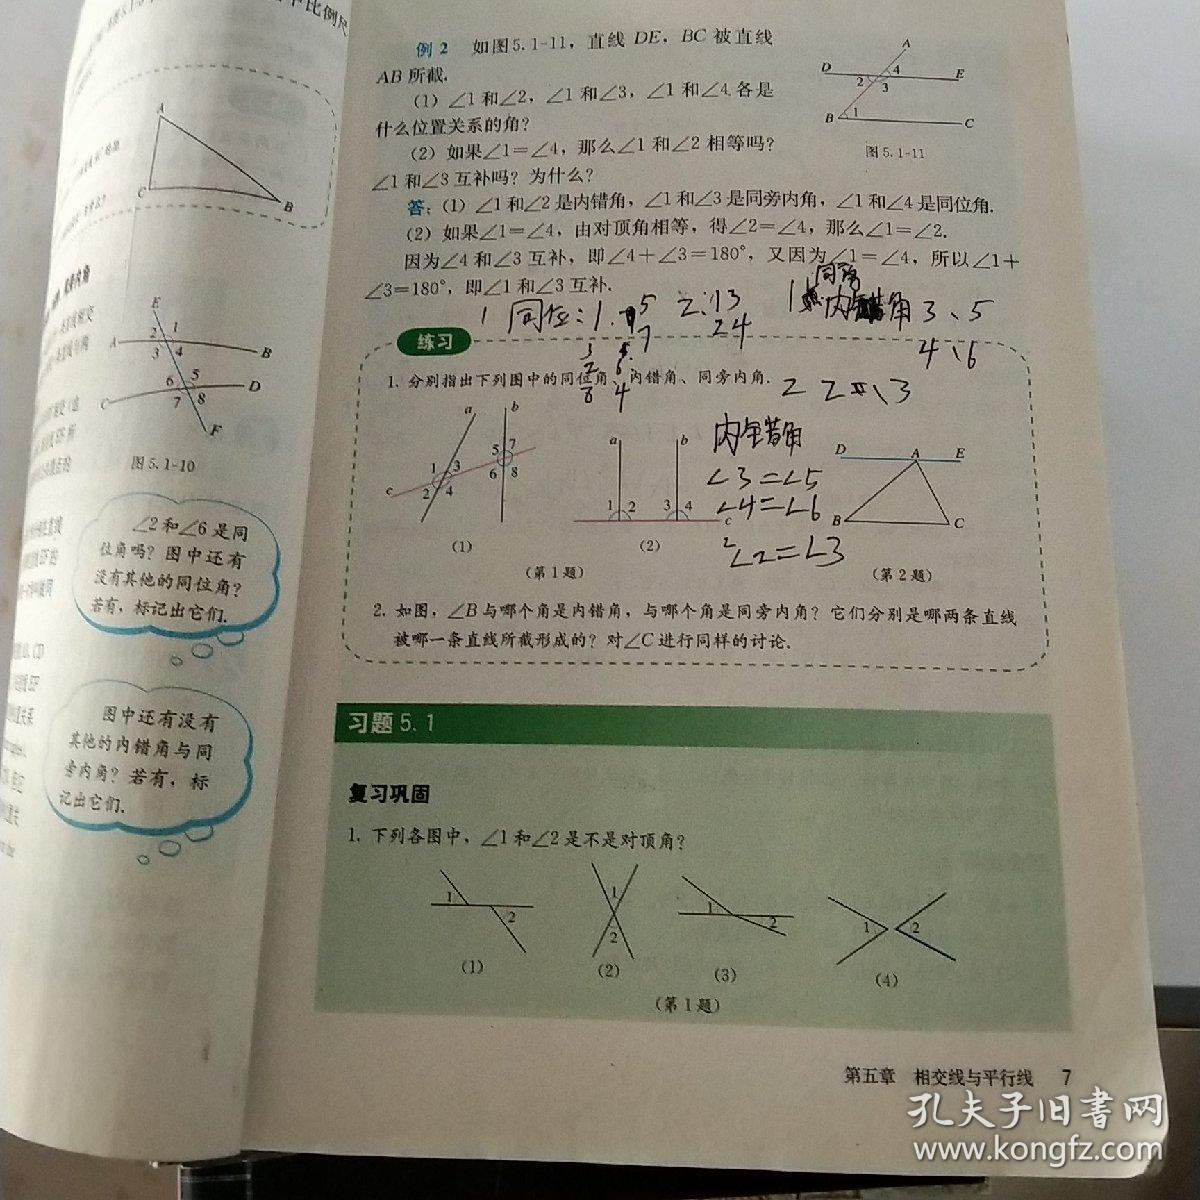 中比例尺
A
C
B
E
2 1
A
3 4
B
6 5
D
C
7 8
F
图5.1-10
∠2和∠6是同
位角吗？图中还有
没有其他的同位角？
若有，标记出它们.
图中还有没有
其他的内错角与同
旁内角？若有，标
记出它们.
例 2 如图5.1-11，直线 DE，BC 被直线
AB 所截.
(1) ∠1和∠2，∠1和∠3，∠1和∠4 各是
什么位置关系的角？
(2) 如果∠1=∠4，那么∠1 和∠2 相等吗？
∠1 和∠3 互补吗？为什么？
A
D
4
E
2 3
B 1
C
图5.1-11
答：(1) ∠1和∠2是内错角，∠1和∠3是同旁内角，∠1和∠4是同位角.
(2) 如果∠1=∠4，由对顶角相等，得∠2=∠4，那么∠1=∠2.
因为∠4 和∠3 互补，即∠4+∠3=180°，又因为∠1=∠4，所以∠1+
∠3=180°，即∠1 和∠3 互补.
1 同位：1. 5
7
2：13
24
同旁
内错角 3、5
4、6
练习
1. 分别指出下列图中的同位角、内错角、同旁内角.
2 2、3
内错角
∠3=∠5
∠4=∠6
∠2=∠3
a b
1 3 5 7
c 2 4 6 8
(1)
a b
1 2 3 4
c
(2)
(第 1 题)
D A E
B C
(第 2 题)
2. 如图，∠B与哪个角是内错角，与哪个角是同旁内角？它们分别是哪两条直线
被哪一条直线所截形成的？对∠C进行同样的讨论.
习题 5.1
复习巩固
1. 下列各图中，∠1和∠2是不是对顶角？
1 2
(1)
1
2
(2)
1 2
(3)
1 2
(4)
(第 1 题)
第五章 相交线与平行线 7
孔夫子旧书网
www.kongfz.com